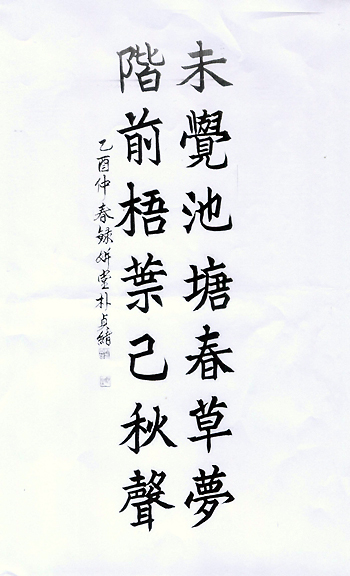 未覺池塘春草夢
階前梧葉己秋聲
乙酉仲春錄 堂朴貞緖